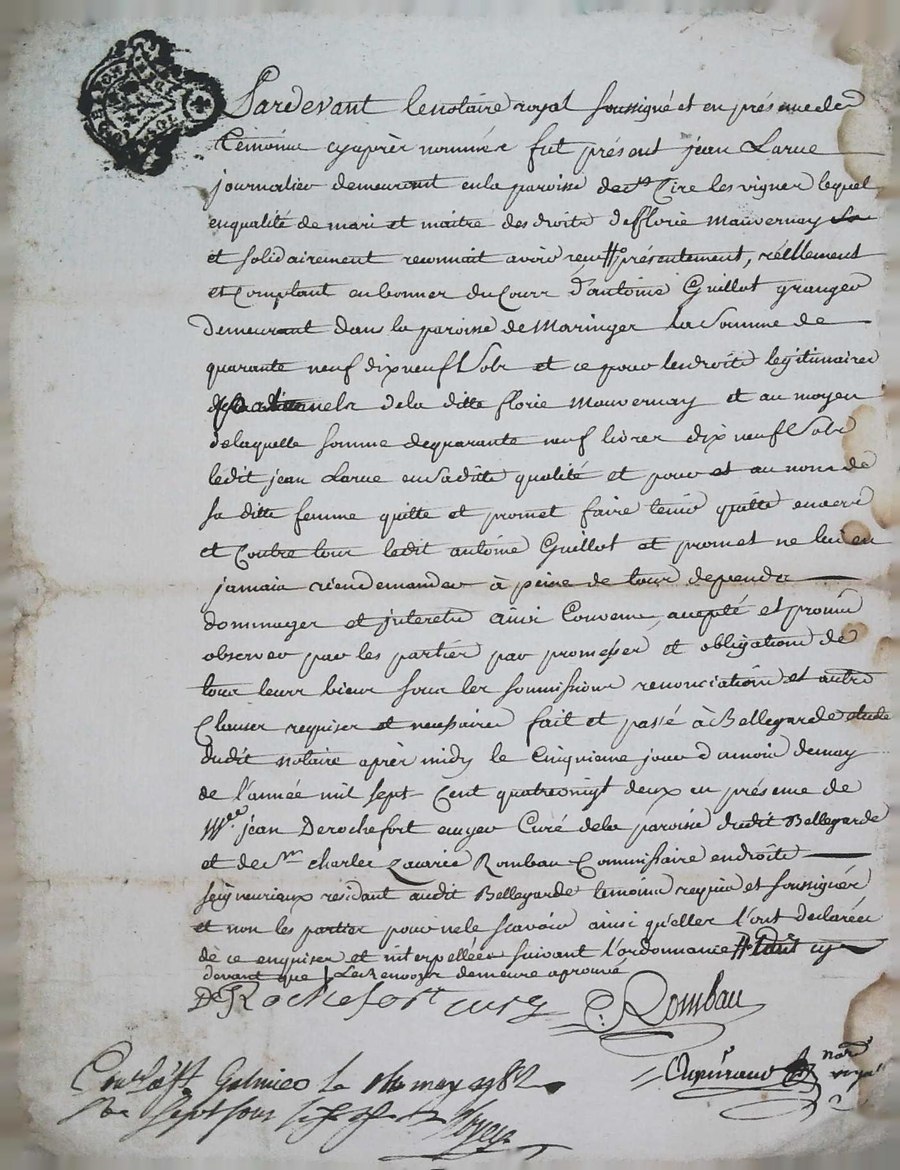 Pardevant le notaire royal soussigné et en présence des
témoins cyaprès nommés fut présent jean Larue
journalier demeurant en la paroisse de st Cire les vignes lequel
en qualité de mari et maitre des droits de florie mauvernay
et solidairement reconnait avoir reçu présentement, réellement
et comptant en bonnes du cours d'antoine Guillot granger
demeurant dans la paroisse de Maringes la somme de
quarante neuf dix neuf sols et ce pour les droits legitimaires
de la ditte florie mauvernay et au moyen
de laquelle somme de quarante neuf livres dix neuf sols
ledit jean Larue en sa dite qualité et pour et au nom de
sa ditte femme quitte et promet faire tenir quitte envers
et contre tous ledit antoine Guillot et promet ne lui en
jamais rien demander à peine de tous depends
dommages et interets ainsi convenu, accepté et promis
observer par les parties par promesses et obligation de
tous leurs biens sous les soumissions renonciations et autres
clauses requises et necessaires fait et passé à Bellegarde
dudit notaire après midy le cinquieme jour du mois de may
de l'année mil sept cent quatrevingt deux en présence de
jean Derochefort Curé de la paroisse dudit Bellegarde
et de sr charles Rombau Commissaire en droits
seigneuriaux résidant audit Bellegarde temoins requis et soussignés
et non les parties pour ne le scavoir ainsi qu'elles l'ont declarée
de ce enquises et interpellées suivant l'ordonnance
devant que Le Renvoy demeure aprouvé
DeRochefort curé C: Rombau
may 1782
sept sous